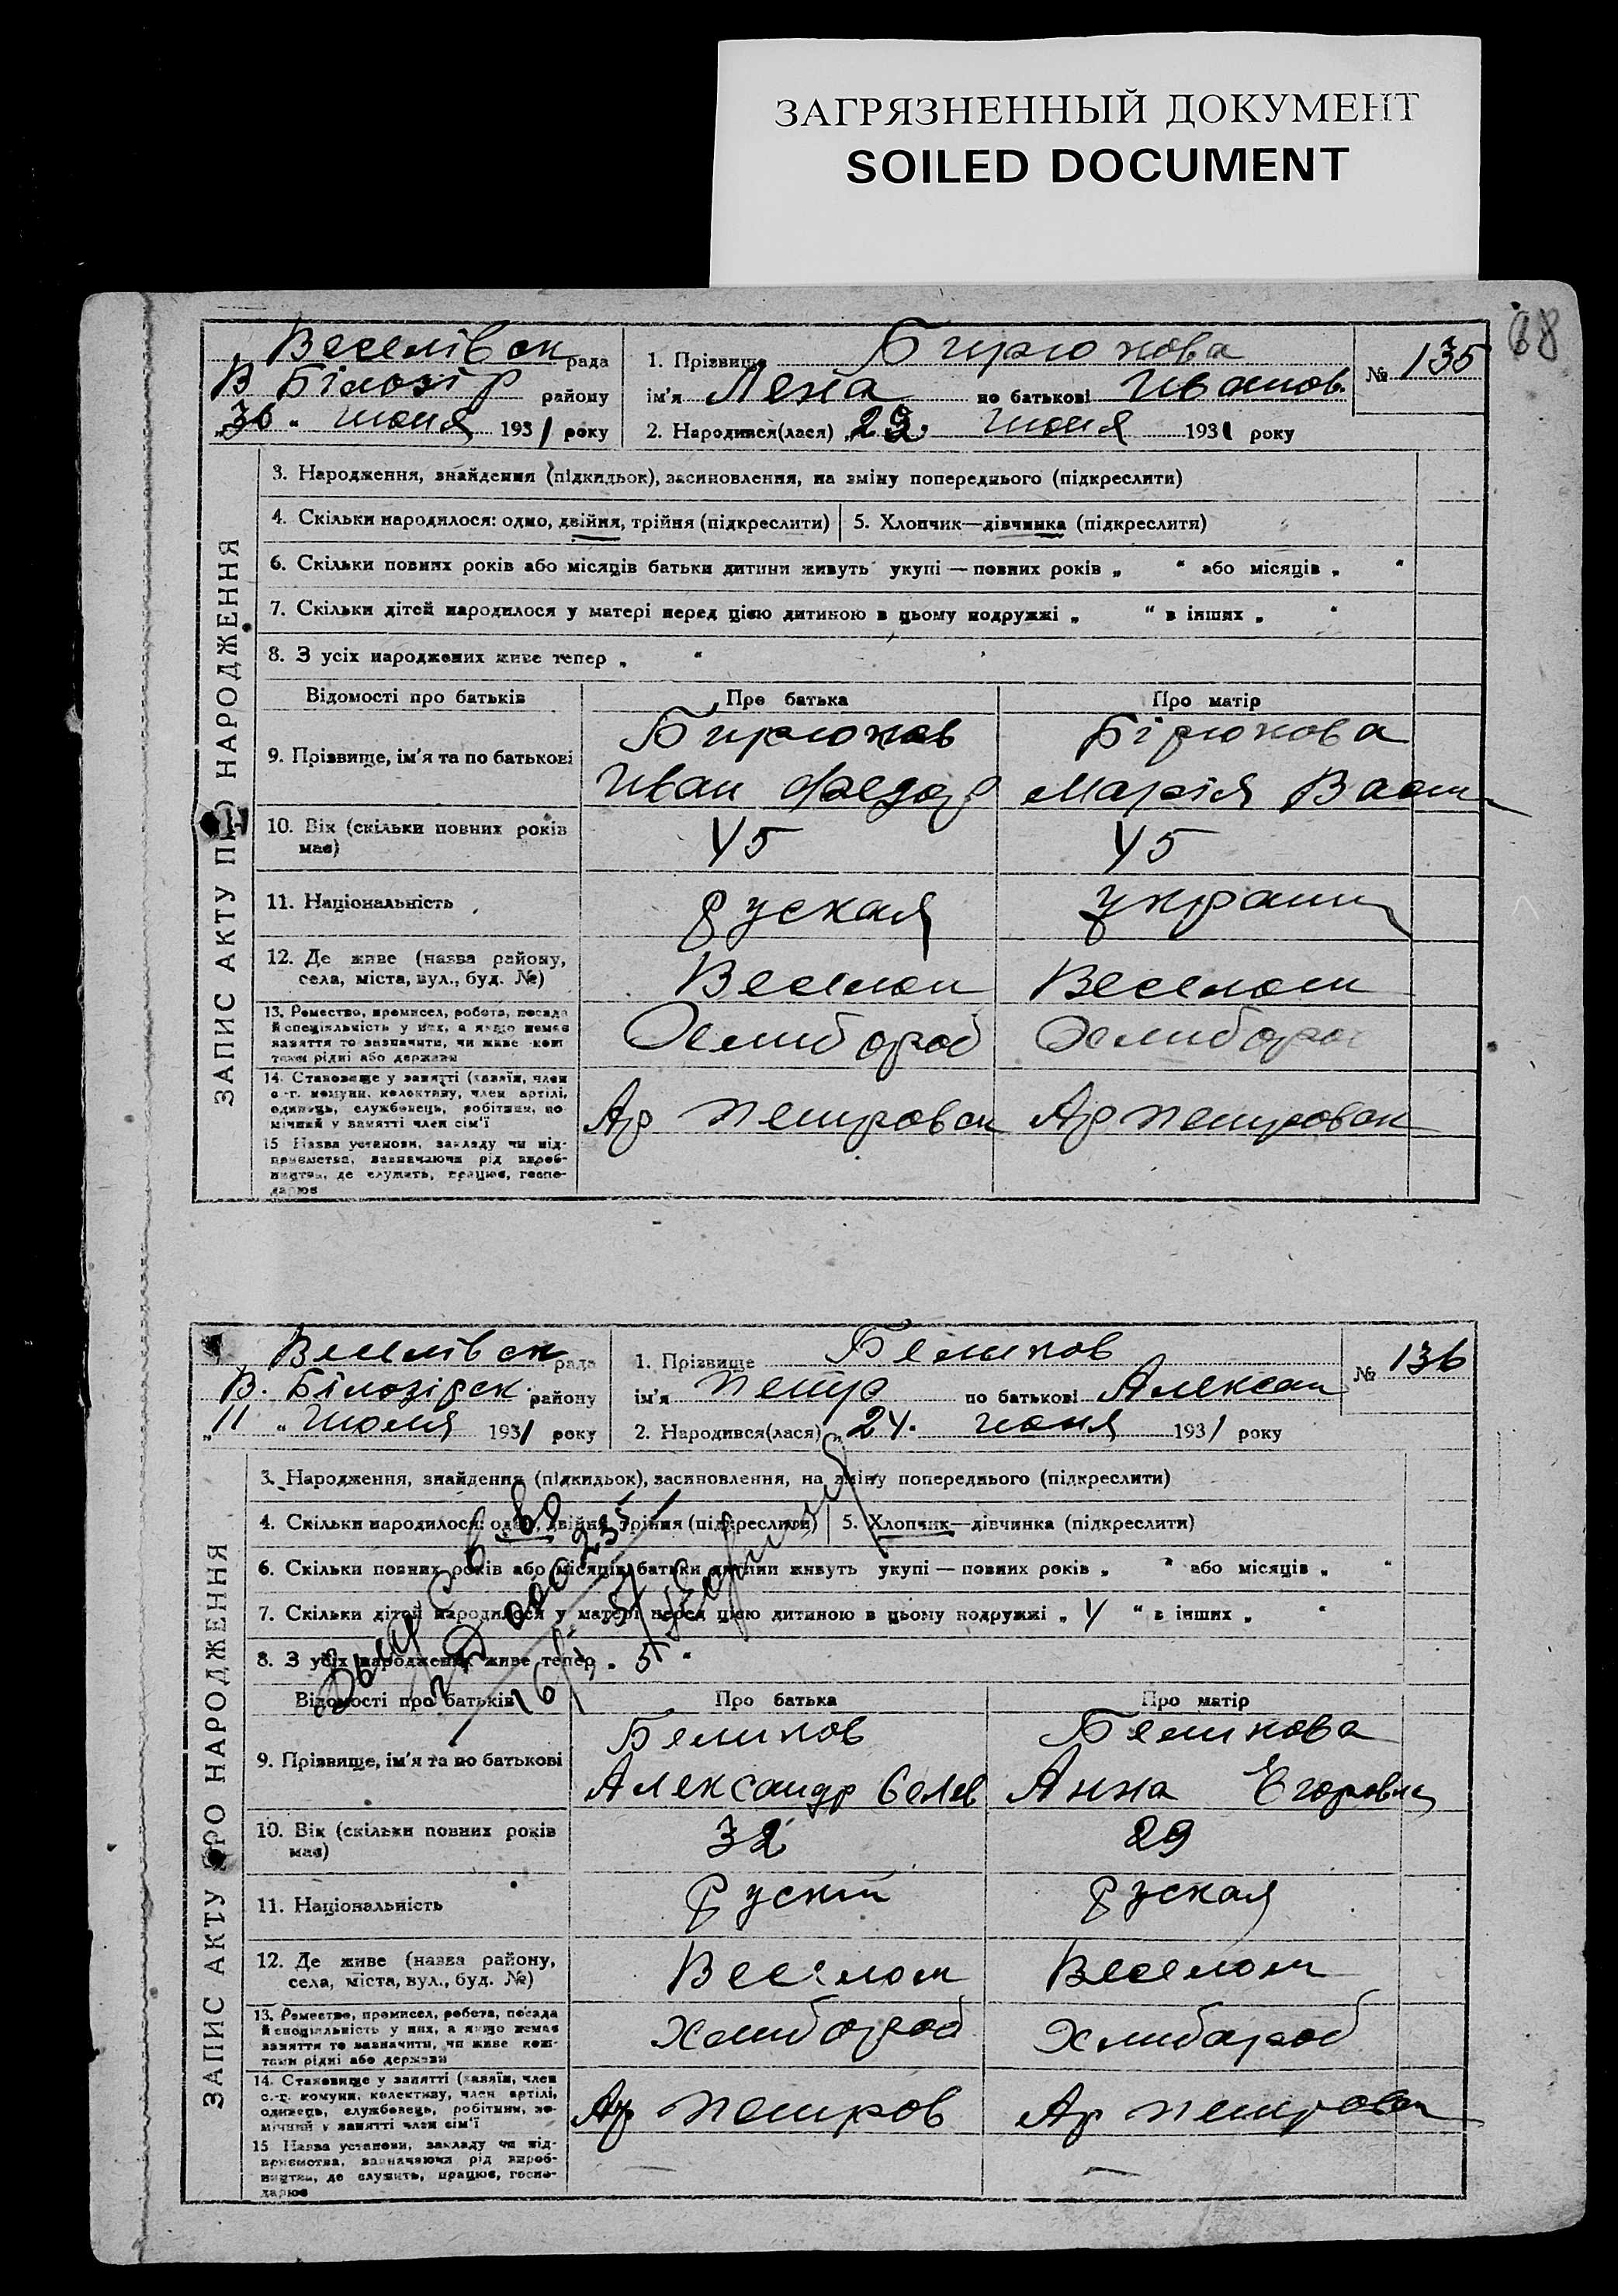 ЗАГРЯЗНЕННЫЙ ДОКУМЕНТ
SOILED DOCUMENT
68
Веселівск рада
В Білозір району
"30" июня 1931 року
1. Прізвище Бирюкова
ім'я Лена по батькові Иванов.
2. Народився(лася) "23. июня 1931 року
№ 135
ЗАПИС АКТУ ПРО НАРОДЖЕННЯ
3. Народження, знайдення (підкидьок), засиновлення, на зміну попереднього (підкреслити)
4. Скільки народилося: одно, двійня, трійня (підкреслити) 5. Хлопчик—дівчинка (підкреслити)
6. Скільки повних років або місяців батьки дитини живуть укупі — повних років „ “ або місяців „ “
7. Скільки дітей народилося у матері перед цією дитиною в цьому подружжі „ “ в інших „ “
8. З усіх народжених живе тепер „ “
Відомості про батьків Про батька Про матір
9. Прізвище, ім'я та по батькові
Бирюков Бірюкова
Иван Федор Марія Васил
10. Вік (скільки повних років має) 45 45
11. Національність руская украин
12. Де живе (назва району, села, міста, вул., буд. №) Веселом Веселом
13. Ремество, промисел, робота, посада
й спеціяльність у них, а якщо немає
заняття то зазначити, чи живе кош
тами рідні або держави
Хлибороб Хлибороб
14. Становище у занятті (хазяїн, член
с.-г. комуни, колективу, член артілі,
одинець, службовець, робітник, по
мічний у занятті член сім'ї
Ар Петровск Ар Петровск
15 Назва установи, закладу чи під-
приємства, зазначаючи рід вироб-
ництва, де служить, працює, госпо-
дарює
Веселівск рада
В. Білозірск. району
"11" Июля 1931 року
1. Прізвище Беликов
ім'я Петр по батькові Алексан
2. Народився(лася) "24. июня 1931 року
№ 136
ЗАПИС АКТУ ПРО НАРОДЖЕННЯ
3. Народження, знайдення (підкидьок), засиновлення, на зміну попереднього (підкреслити)
4. Скільки народилося: одно, двійня, трійня (підкреслити) 5. Хлопчик—дівчинка (підкреслити)
6. Скільки повних років або місяців батьки дитини живуть укупі — повних років „ “ або місяців „ “
7. Скільки дітей народилося у матері перед цією дитиною в цьому подружжі „ 4 “ в інших „ “
8. З усіх народжених живе тепер „ 5 “
Відомості про батьків Про батька Про матір
9. Прізвище, ім'я та по батькові
Беликов Беликова
Александр Анна Егоровн
10. Вік (скільки повних років має) 32 29
11. Національність руский руская
12. Де живе (назва району, села, міста, вул., буд. №) Веселом Веселом
13. Ремество, промисел, робота, посада
й спеціяльність у них, а якщо немає
заняття то зазначити, чи живе кош-
тами рідні або держави
Хлибороб Хлибороб
14. Становище у занятті (хазяїн, член
с.-г. комуни, колективу, член артілі,
одинець, службовець, робітник, по-
мічний у занятті член сім'ї
Ар Петров Ар Петровск
15 Назва установи, закладу чи під-
приємства, зазначаючи рід вироб-
ництва, де служить, працює, госпо-
дарює